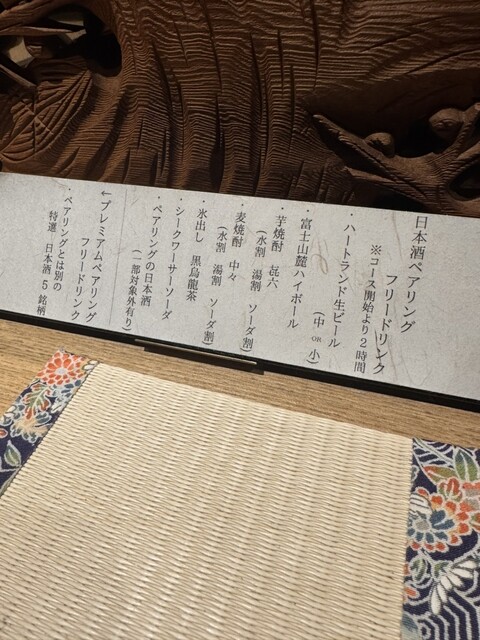 日本酒ペアリング
フリードリンク
※コース開始より2時間
・ハートランド生ビール
(中 OR 小)
・富士山麓ハイボール
・芋焼酎 㐂六
(水割 湯割 ソーダ割)
・麦焼酎 中々
(水割 湯割 ソーダ割)
・氷出し 黒烏龍茶
・シークワーサーソーダ
・ペアリングの日本酒
(一部対象外有り)
←プレミアムペアリング
フリードリンク
・ペアリングとは別の
特選 日本酒 5 銘柄